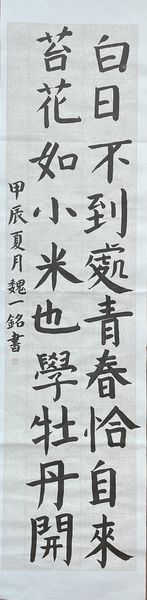 白日不到處青春恰自來
苔花如小米也學牡丹開
甲辰夏月魏一銘書